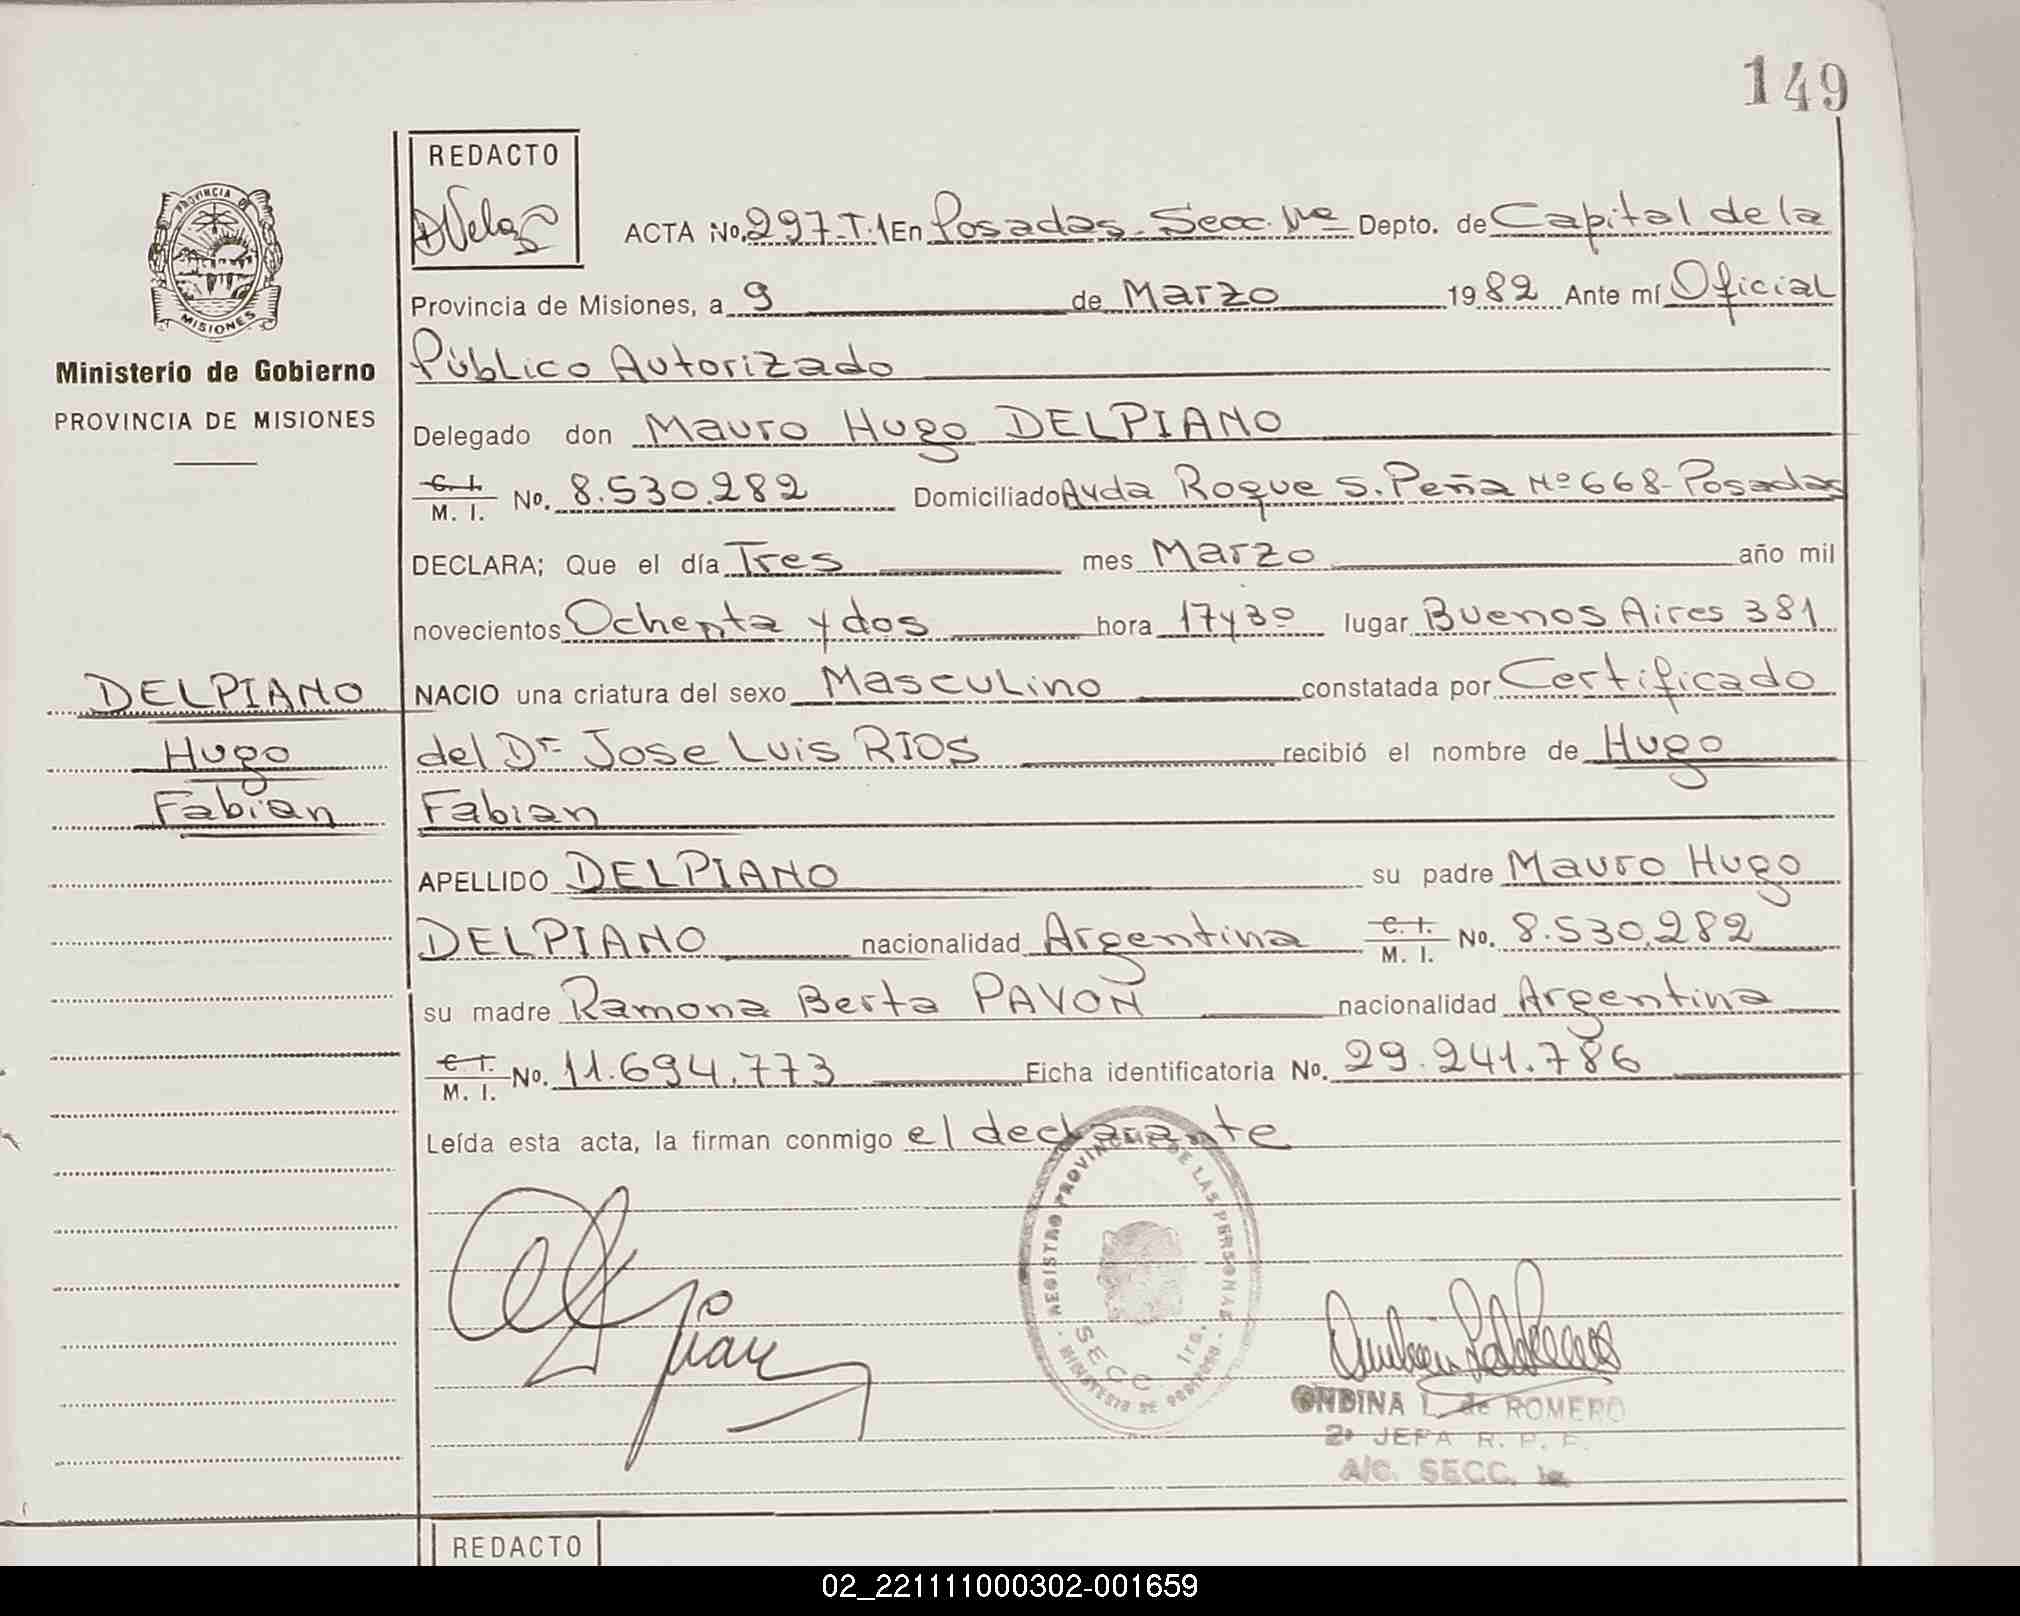 149
REDACTO
DVelaz
ACTA No. 297-T.1 En Posadas-Secc. 1ra Depto. de Capital de la
Provincia de Misiones, a 9 de Marzo 1982 Ante mí Oficial
Público Autorizado
Delegado don Mauro Hugo DELPIANO
C. I. M. I. No. 8.530.282 Domiciliado Avda Roque S. Peña Nº 668-Posadas
DECLARA; Que el día Tres mes Marzo año mil
novecientos Ochenta y dos hora 17y30 lugar Buenos Aires 381
NACIO una criatura del sexo Masculino constatada por Certificado
del Dr Jose Luis RIOS recibió el nombre de Hugo
Fabian
APELLIDO DELPIANO su padre Mauro Hugo
DELPIANO nacionalidad Argentina C. I. M. I. No. 8.530.282
su madre Ramona Berta PAVON nacionalidad Argentina
C. I. M. I. No. 11.694.773 Ficha identificatoria No. 29.241.786
Leída esta acta, la firman conmigo el declarante
PROVINCIA DE MISIONES
Ministerio de Gobierno
PROVINCIA DE MISIONES
DELPIANO
Hugo
Fabian
REGISTRO PROVINCIAL DE LAS PERSONAS
SECC 1ra.
MINISTERIO DE GOBIERNO
ONDINA L. de ROMERO
2º JEFA R. P. P.
A/C. SECC. 1a
REDACTO
02_221111000302-001659